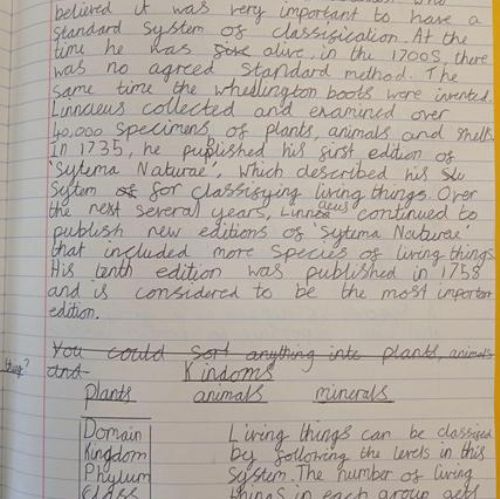 believed it was very important to have a
standard system of classisication. At the
time he was alive, in the 1700s, there
was no agreed standard method. The
same time the whellington boots were invented.
Linnaeus collected and examined over
40,000 specimens, of plants, animals and shells.
In 1735, he published his first edition of
'Sytema Naturae', which described his
Sytem for classifying living things. Over
the next several years, Linnaeus continued to
publish new editions of 'Sytema Naturae'
that included more species of living things
His tenth edition was published in 1758
and is considered to be the most importan
edition.
You could sort anything into plants, animals
and Kindoms
plants animals minerals
Domain Living things can be classified
Kingdom by following the levels in this
Phylum system. The number of living
Class things in each group gets